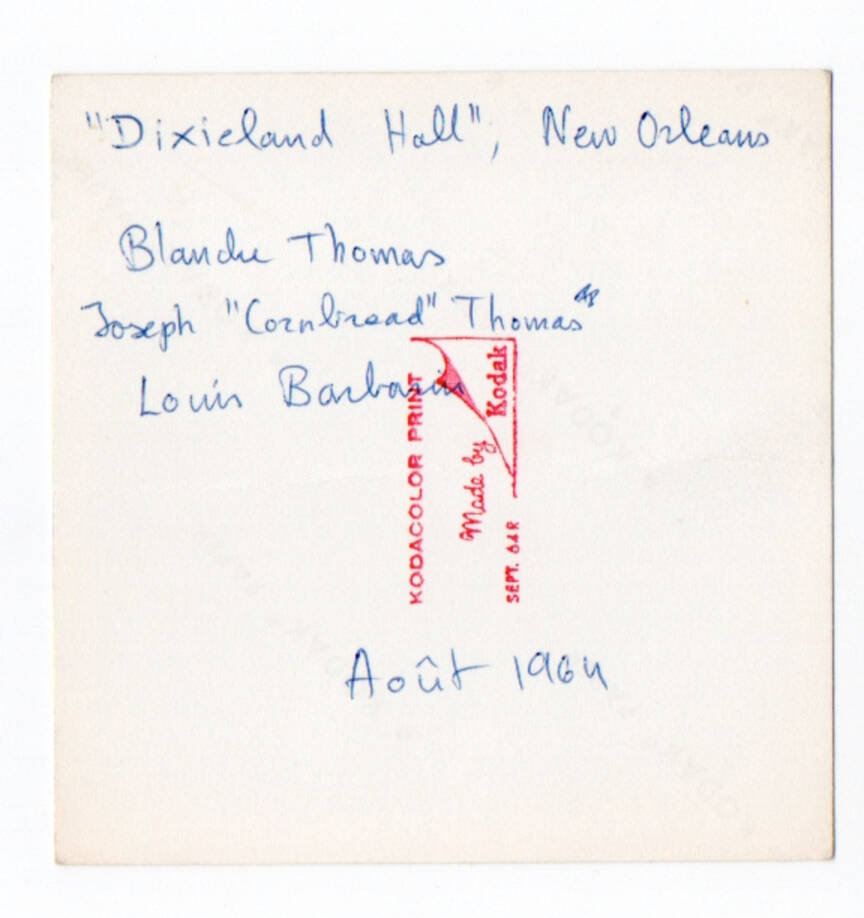 "Dixieland Hall", New Orleans
Blanche Thomas
Joseph "Cornbread" Thomas
Louis Barbarin
KODACOLOR PRINT
Made by Kodak
SEPT. 64R
Août 1964